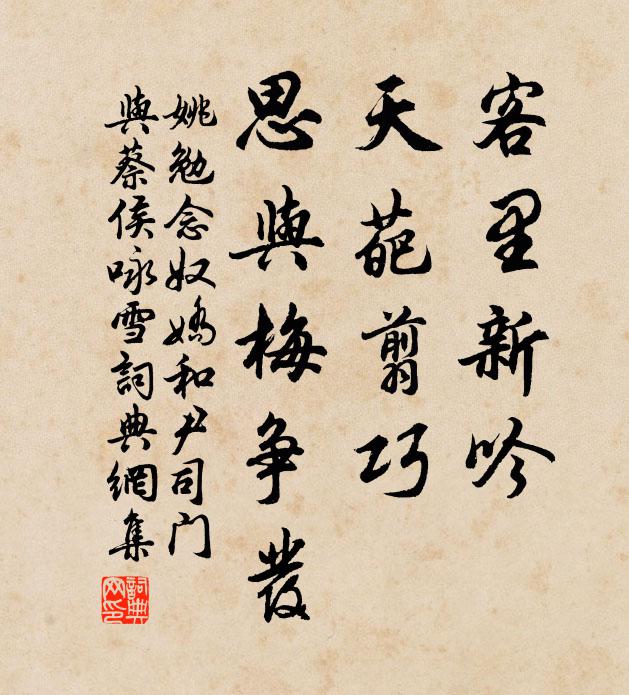 客里新吟
天葩翦巧
思與梅争發
姚勉念奴嬌和尹司门
與蔡侯咏雪詞典網集
詞典网印